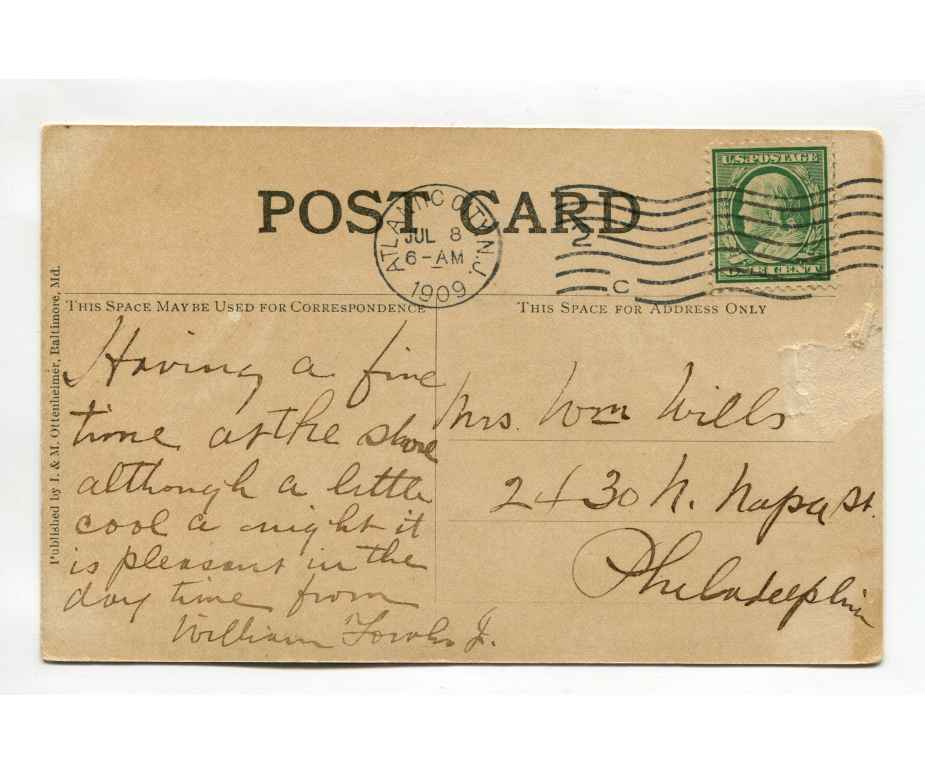 U.S. POSTAGE
ONE CENT
POST CARD
ATLANTIC CITY N.J.
JUL 8
6-AM
1909
2
C
THIS SPACE MAY BE USED FOR CORRESPONDENCE
THIS SPACE FOR ADDRESS ONLY
Published by I. & M. Ottenheimer, Baltimore, Md.
Having a fine
time at the shore
although a little
cool a night it
is pleasant in the
day time from
William Jr.
Mrs. Wm Wills
2430 N. Napa St.
Philadelphia